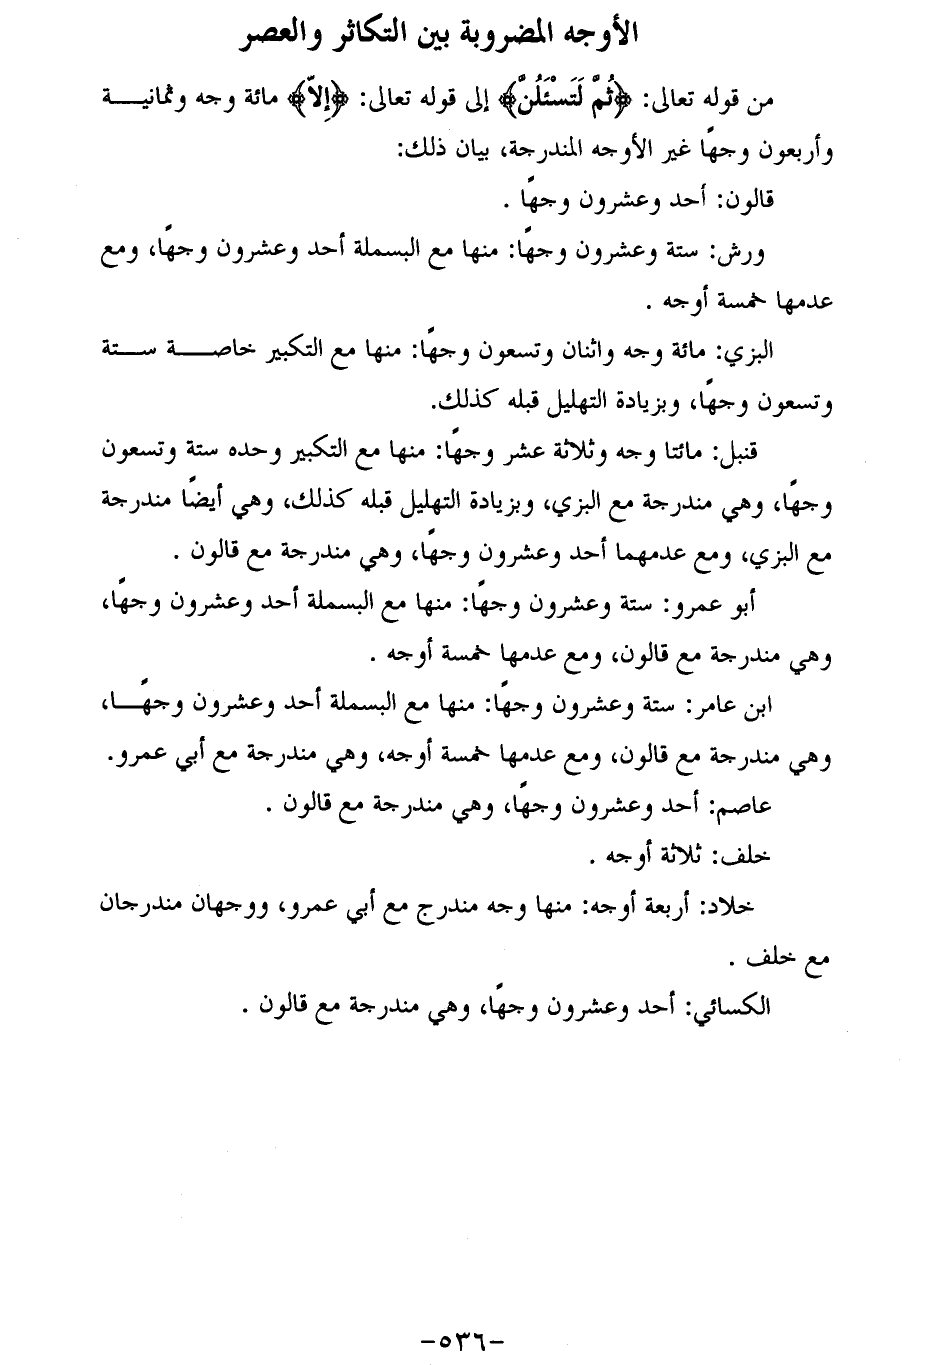 الأوجه المضروبة بين التكاثر والعصر
من قوله تعالى: ﴿ثُمَّ لَتَسْئَلُنَّ﴾ إلى قوله تعالى: ﴿إِلاَّ﴾ مائة وجه وثمانيـــة
وأربعون وجهًا غير الأوجه المندرجة، بيان ذلك:
قالون: أحد وعشرون وجهًا .
ورش: ستة وعشرون وجهًا: منها مع البسملة أحد وعشرون وجهًا، ومع
عدمها خمسة أوجه .
البزي: مائة وجه واثنان وتسعون وجهًا: منها مع التكبير خاصـــة ســتة
وتسعون وجهًا، وبزيادة التهليل قبله كذلك.
قنبل: مائتا وجه وثلاثة عشر وجهًا: منها مع التكبير وحده ستة وتسعون
وجهًا، وهي مندرجة مع البزي، وبزيادة التهليل قبله كذلك، وهي أيضًا مندرجة
مع البزي، ومع عدمهما أحد وعشرون وجهًا، وهي مندرجة مع قالون .
أبو عمرو: ستة وعشرون وجهًا: منها مع البسملة أحد وعشرون وجهًا،
وهي مندرجة مع قالون، ومع عدمها خمسة أوجه .
ابن عامر: ستة وعشرون وجهًا: منها مع البسملة أحد وعشرون وجهًــا،
وهي مندرجة مع قالون، ومع عدمها خمسة أوجه، وهي مندرجة مع أبي عمرو.
عاصم: أحد وعشرون وجهًا، وهي مندرجة مع قالون .
خلف: ثلاثة أوجه .
خلاد: أربعة أوجه: منها وجه مندرج مع أبي عمرو، ووجهان مندرجان
مع خلف .
الكسائي: أحد وعشرون وجهًا، وهي مندرجة مع قالون .
-٥٣٦-